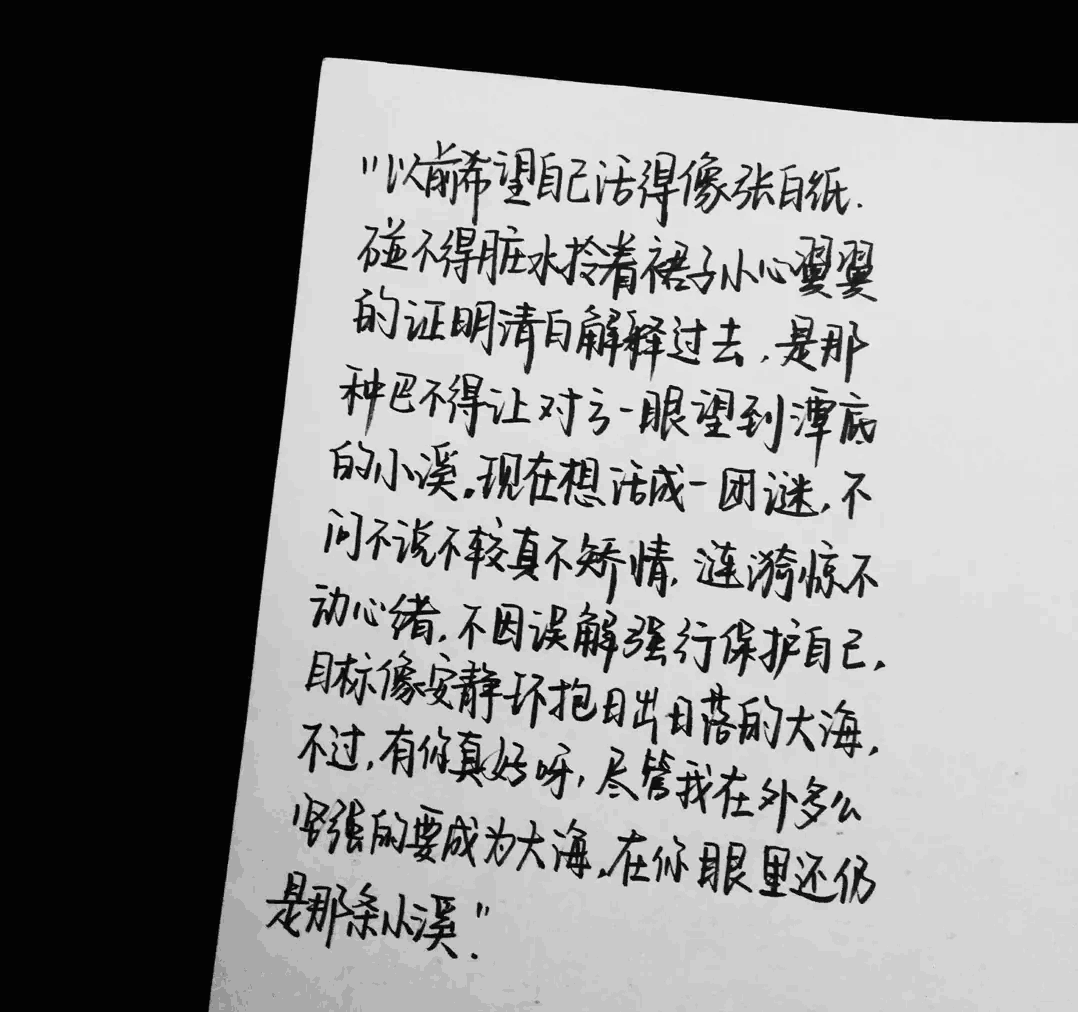 "以前希望自己活得像张白纸.
碰不得脏水拎着裙子小心翼翼
的证明清白解释过去,是那
种巴不得让对方一眼望到潭底
的小溪。现在想活成一团谜,不
问不说不较真不矫情,涟漪惊不
动心绪,不因误解强行保护自己,
目标像安静环抱日出日落的大海,
不过,有你真好呀,尽管我在外多么
坚强的要成为大海,在你眼里还仍
是那条小溪."